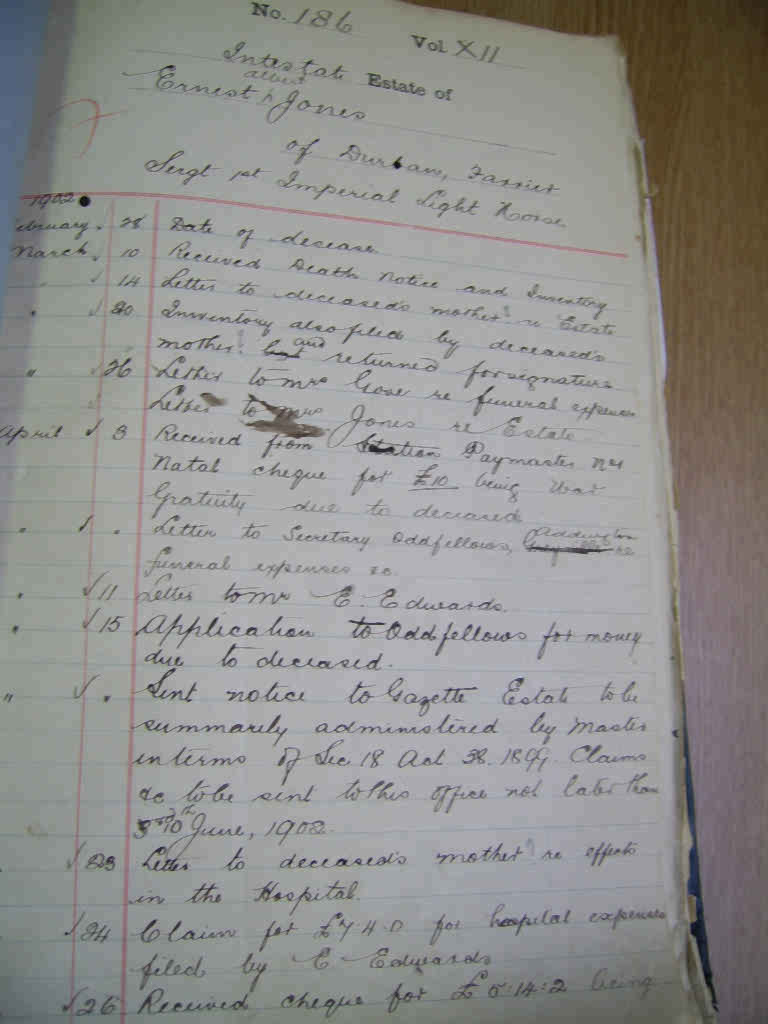 No. 186 Vol XII
Intestate Estate of
albert
Ernest ^ Jones
of Durban, Farrier
Sergt 1st Imperial Light Horse
1902
February 28 Date of decease
March 10 Received Death Notice and Inventory
" 14 Letter to deceased's mother re Estate
" 20 Inventory also filed by deceased's
mother and returned for signature
" 26 Letter to Mrs Gose re funeral expenses
Letter to Mrs Jones re Estate
April 3 Received from Station Paymaster
Natal cheque for £10 being War
Gratuity due to deceased
" " Letter to Secretary Oddfellows, Addington re
funeral expenses &c.
" 11 Letter to Mr E. Edwards.
" 15 Application to Oddfellows for money
due to deceased.
" " Sent notice to Gazette Estate to be
summarily administered by Master
in terms of Sec 18 Act 38. 1899. Claims
&c to be sent to this office not later than
10th June, 1902.
23 Letter to deceased's mother re effects
in the Hospital.
24 Claim for £7.4.0 for hospital expenses
filed by E Edwards
26 Received cheque for £5:14:2 being